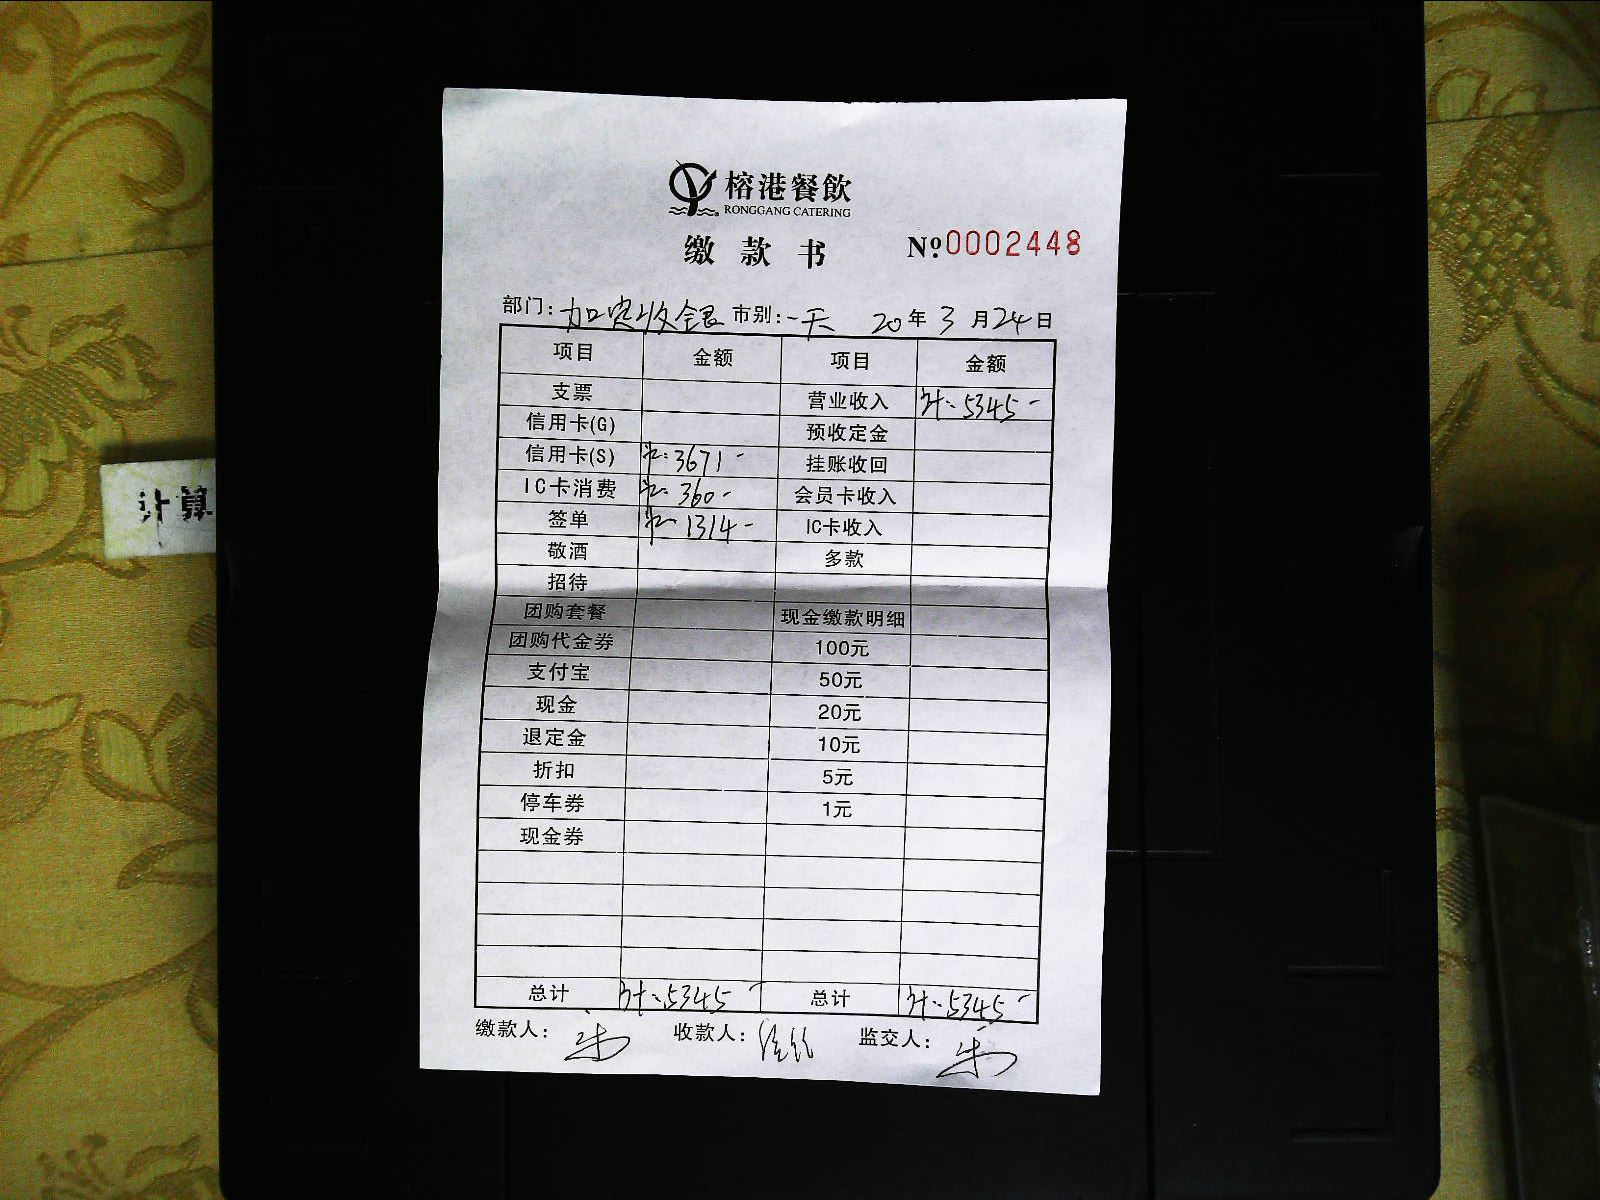 榕港餐飲
RONGGANG CATERING
缴款书 №0002448
部门：加宾收银 市别：一天 20年3月24日
项目 金额 项目 金额
支票 营业收入 5345-
信用卡(G) 预收定金
信用卡(S) 3671-
挂账收回
IC卡消费 360- 会员卡收入
签单 1314- IC卡收入
敬酒 多款
招待
团购套餐 现金缴款明细
团购代金券 100元
支付宝 50元
现金 20元
退定金 10元
折扣 5元
停车券 1元
现金券
总计 5345- 总计 5345-
缴款人： 收款人： 监交人：
计算